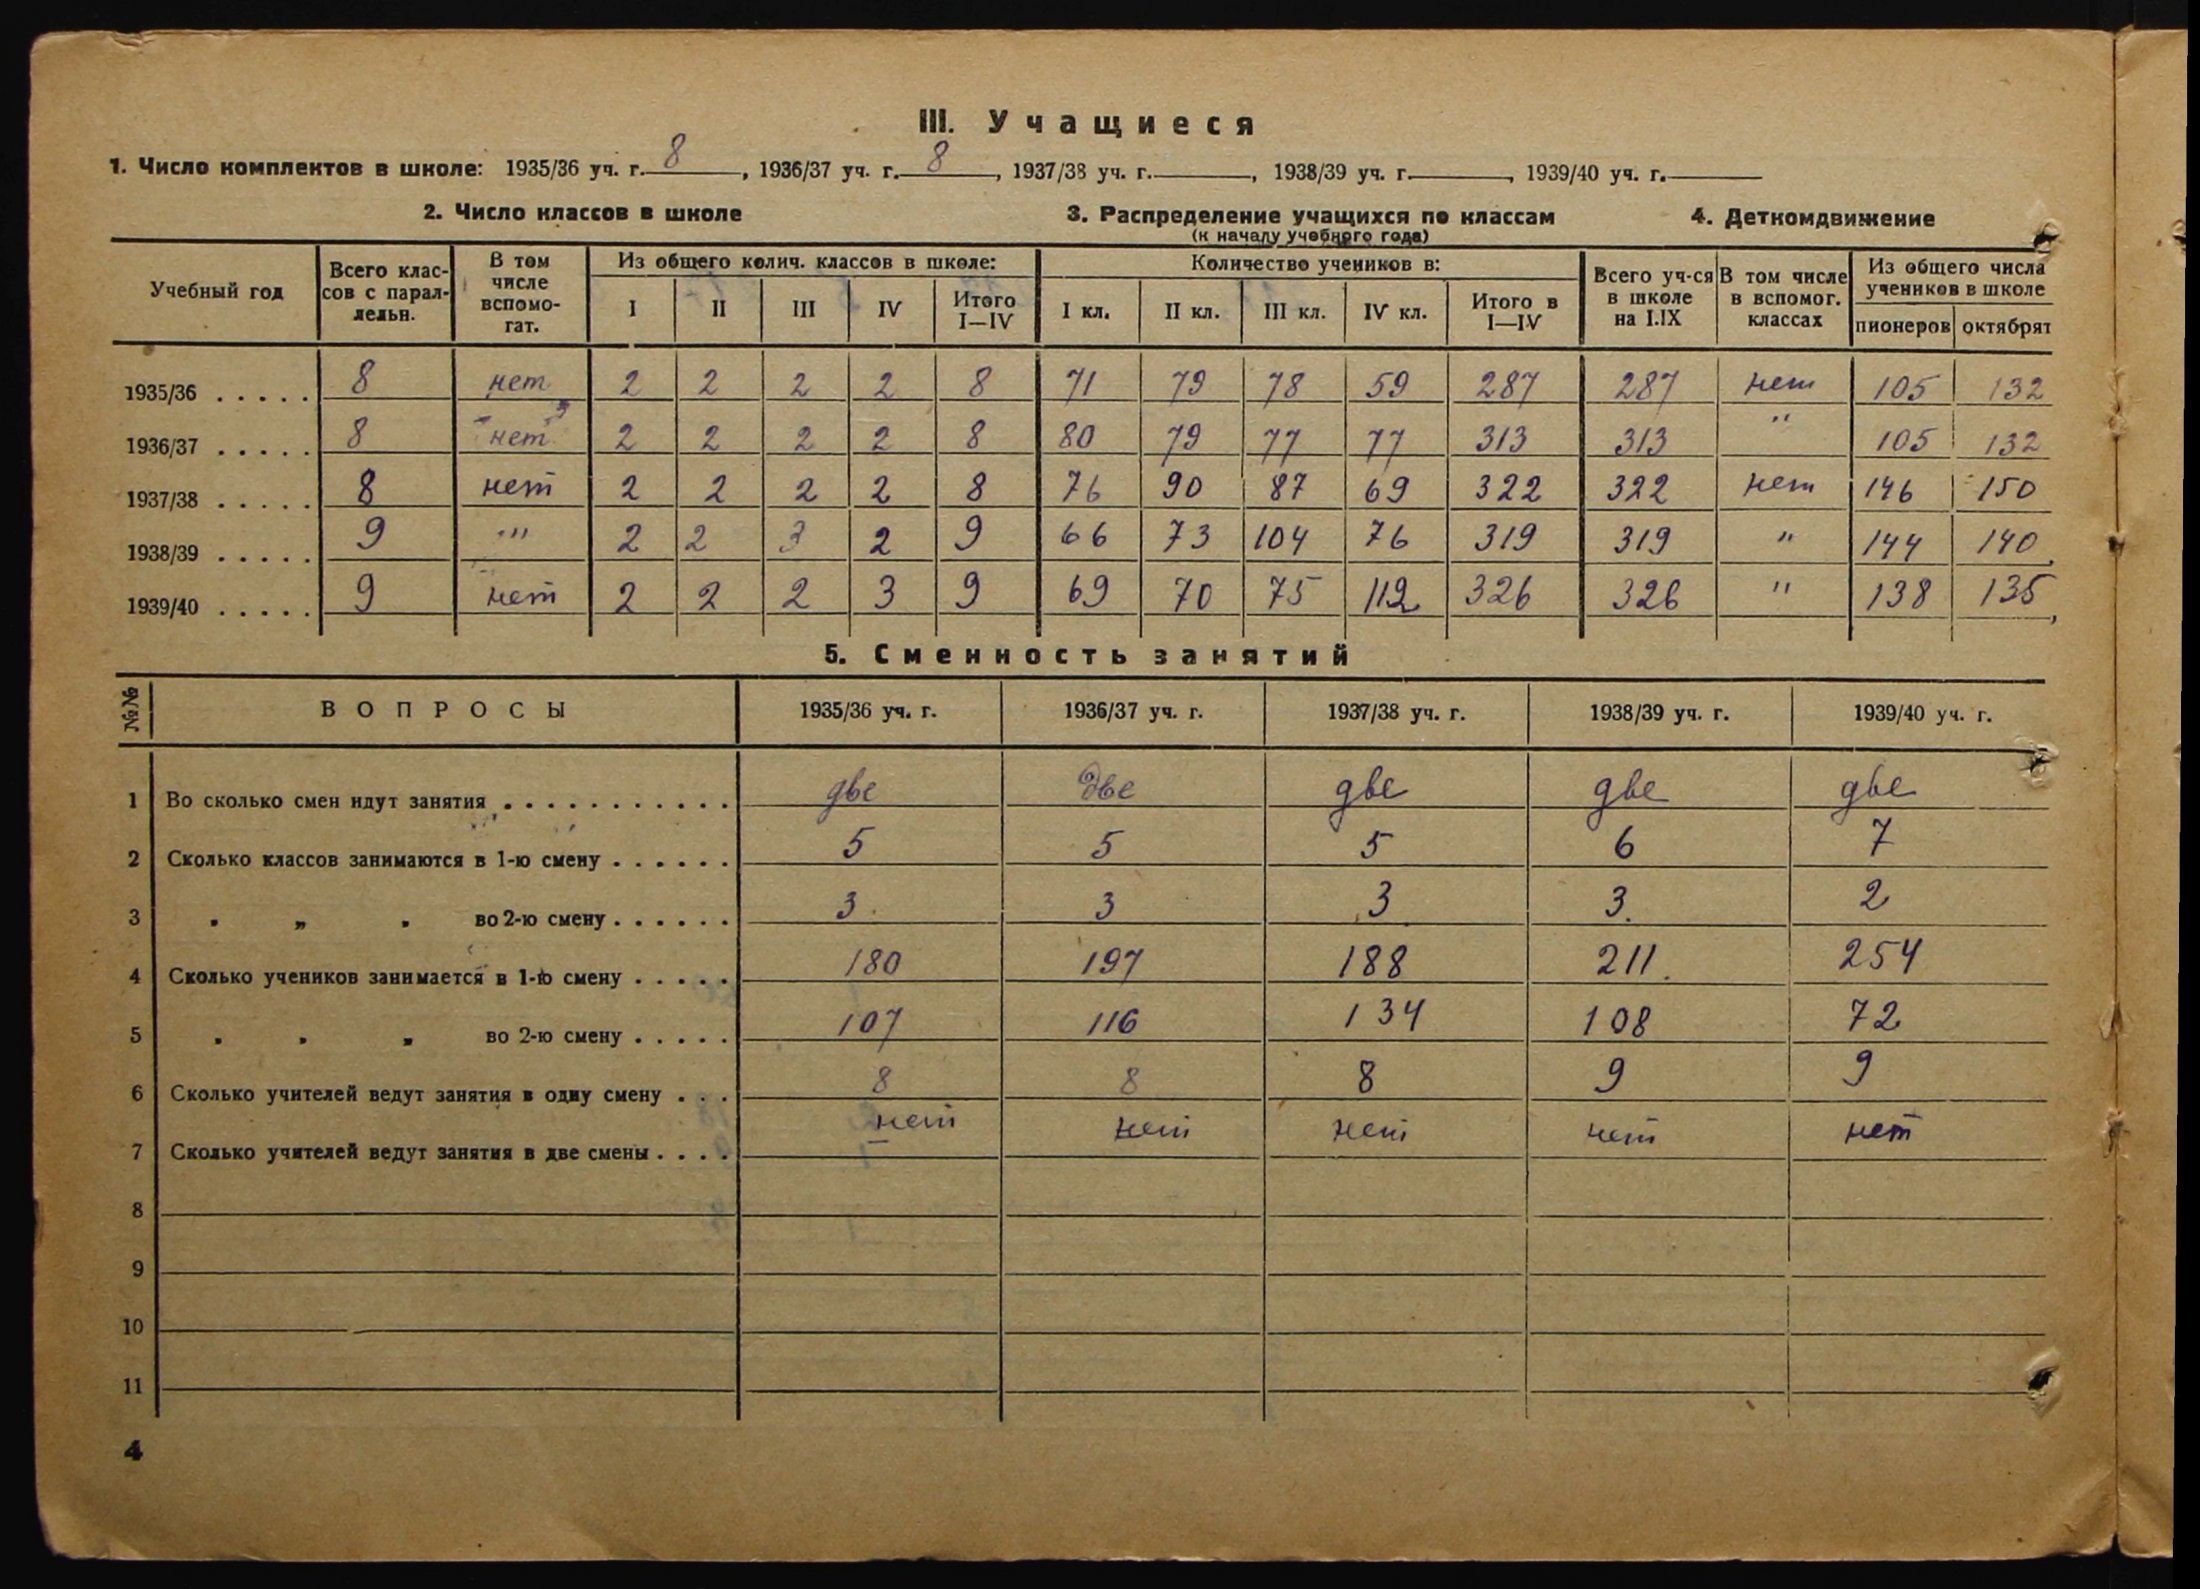 III. Учащиеся
1. Число комплектов в школе: 1935/36 уч. г. 8, 1936/37 уч. г. 8, 1937/38 уч. г. , 1938/39 уч. г. , 1939/40 уч. г.
2. Число классов в школе 3. Распределение учащихся по классам 4. Деткомдвижение
(к началу учебного года)
Учебный год Всего клас-сов с парал-лельн. В том числе вспомо-гат. Из общего колич. классов в школе: Количество учеников в: Всего уч-ся в школе на I.IX В том числе в вспомог. классах Из общего числа учеников в школе
I II III IV Итого I—IV I кл. II кл. III кл. IV кл. Итого в I—IV пионеров октябрят
1935/36 . . . . . 8 нет 2 2 2 2 8 71 79 78 59 287 287 нет 105 132
1936/37 . . . . . 8 нет 2 2 2 2 8 80 79 77 77 313 313 " 105 132
1937/38 . . . . . 8 нет 2 2 2 2 8 76 90 87 69 322 322 нет 146 150
1938/39 . . . . . 9 " 2 2 3 2 9 66 73 104 76 319 319 " 144 140
1939/40 . . . . . 9 нет 2 2 2 3 9 69 70 75 112 326 326 " 138 135
5. Сменность занятий
№№ ВОПРОСЫ 1935/36 уч. г. 1936/37 уч. г. 1937/38 уч. г. 1938/39 уч. г. 1939/40 уч. г.
1 Во сколько смен идут занятия . . . . . . . . . . . две две две две две
2 Сколько классов занимаются в 1-ю смену . . . . . . 5 5 5 6 7
3 " " " во 2-ю смену . . . . . . 3 3 3 3 2
4 Сколько учеников занимается в 1-ю смену . . . . . 180 197 188 211 254
5 " " " во 2-ю смену . . . . . 107 116 134 108 72
6 Сколько учителей ведут занятия в одну смену . . . 8 8 8 9 9
7 Сколько учителей ведут занятия в две смены . . . . нет нет нет нет нет
8
9
10
11
4